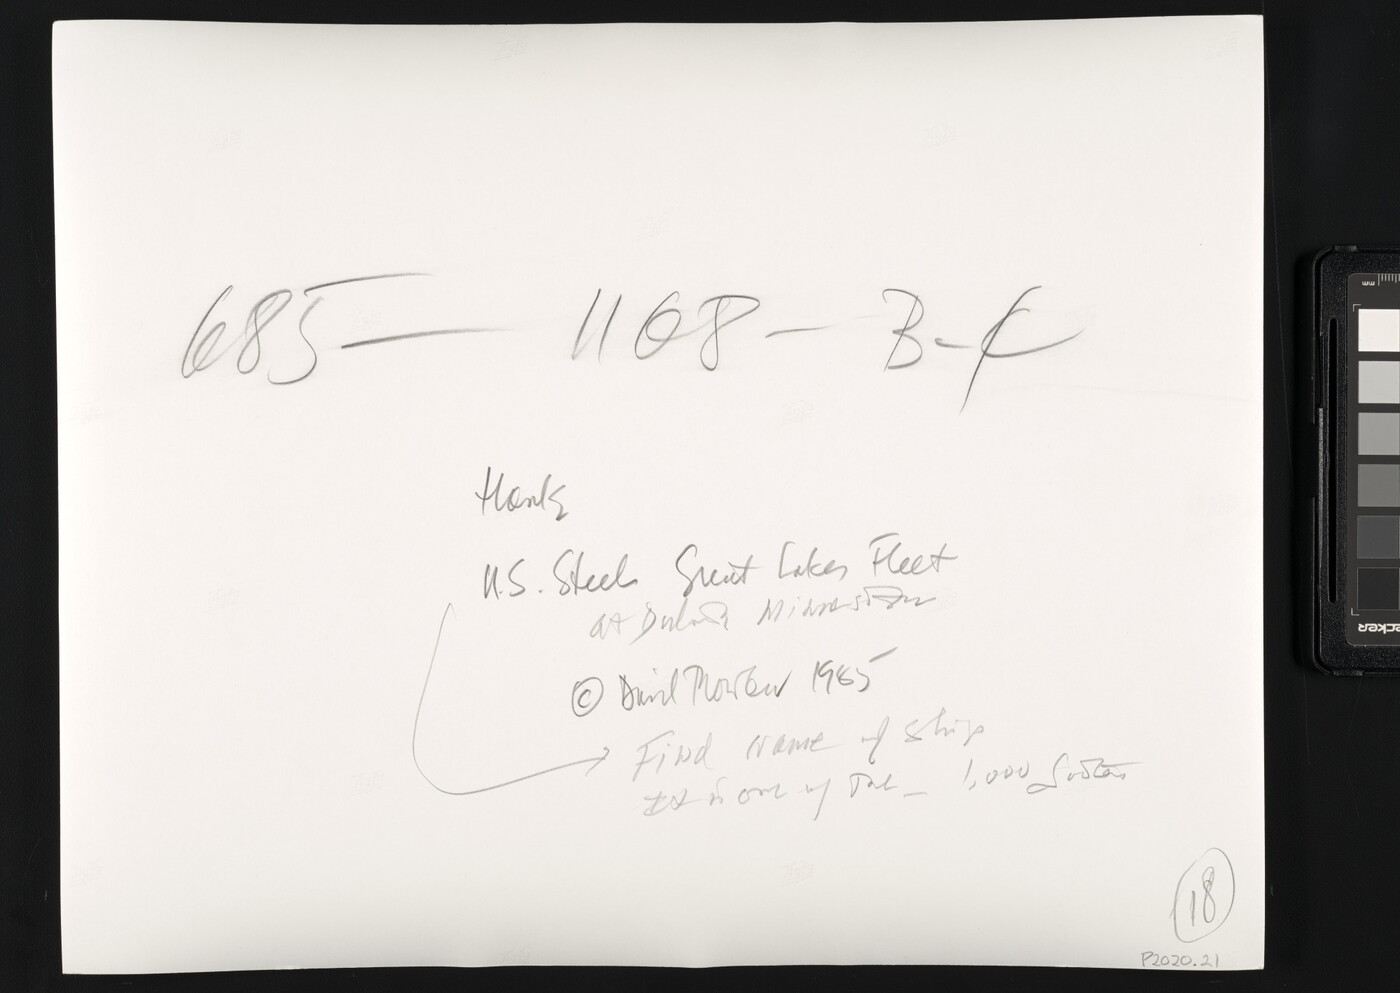 685 — 1108 – B-C
Hank
U.S. Steels Great Lakes Fleet
at Duluth Minnesota
© David Plowden 1985
Find name of ship
It is one of the – 1,000 footers
18
P2020.21
mm